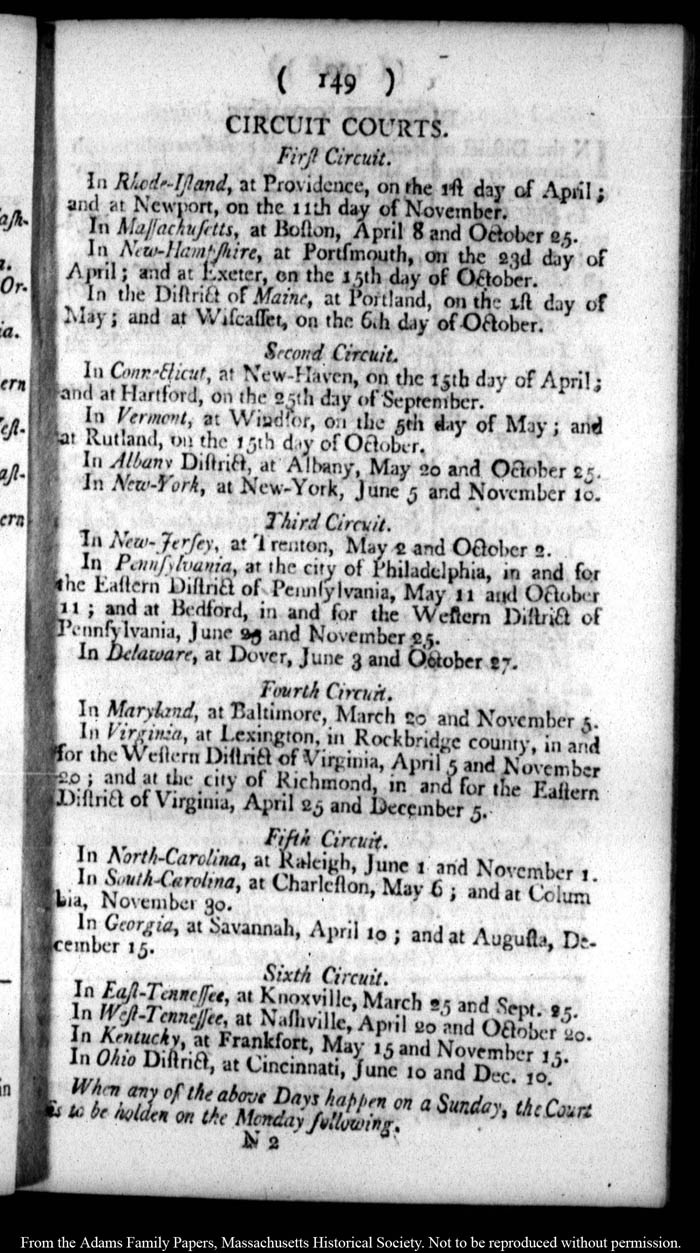 ( 149 )
CIRCUIT COURTS.
Firſt Circuit.
In Rhode-Iſland, at Providence, on the 1ſt day of April;
and at Newport, on the 11th day of November.
In Maſſachuſetts, at Boſton, April 8 and October 25.
In New-Hampſhire, at Portſmouth, on the 23d day of
April; and at Exeter, on the 15th day of October.
In the Diſtrict of Maine, at Portland, on the 1ſt day of
May; and at Wiſcaſſet, on the 6th day of October.
Second Circuit.
In Connecticut, at New-Haven, on the 15th day of April;
and at Hartford, on the 25th day of September.
In Vermont, at Windſor, on the 5th day of May; and
at Rutland, on the 15th day of October.
In Albany Diſtrict, at Albany, May 20 and October 25.
In New-York, at New-York, June 5 and November 10.
Third Circuit.
In New-Jerſey, at Trenton, May 2 and October 2.
In Pennſylvania, at the city of Philadelphia, in and for
the Eaſtern Diſtrict of Pennſylvania, May 11 and October
11; and at Bedford, in and for the Weſtern Diſtrict of
Pennſylvania, June 25 and November 25.
In Delaware, at Dover, June 3 and October 27.
Fourth Circuit.
In Maryland, at Baltimore, March 20 and November 5.
In Virginia, at Lexington, in Rockbridge county, in and
for the Weſtern Diſtrict of Virginia, April 5 and November
20; and at the city of Richmond, in and for the Eaſtern
Diſtrict of Virginia, April 25 and December 5.
Fifth Circuit.
In North-Carolina, at Raleigh, June 1 and November 1.
In South-Carolina, at Charleſton, May 6; and at Colum
bia, November 30.
In Georgia, at Savannah, April 10; and at Auguſta, De-
cember 15.
Sixth Circuit.
In Eaſt-Tenneſſee, at Knoxville, March 25 and Sept. 25.
In Weſt-Tenneſſee, at Naſhville, April 20 and October 20.
In Kentucky, at Frankfort, May 15 and November 15.
In Ohio Diſtrict, at Cincinnati, June 10 and Dec. 10.
When any of the above Days happen on a Sunday, the Court
is to be holden on the Monday following.
N 2
From the Adams Family Papers, Massachusetts Historical Society. Not to be reproduced without permission.